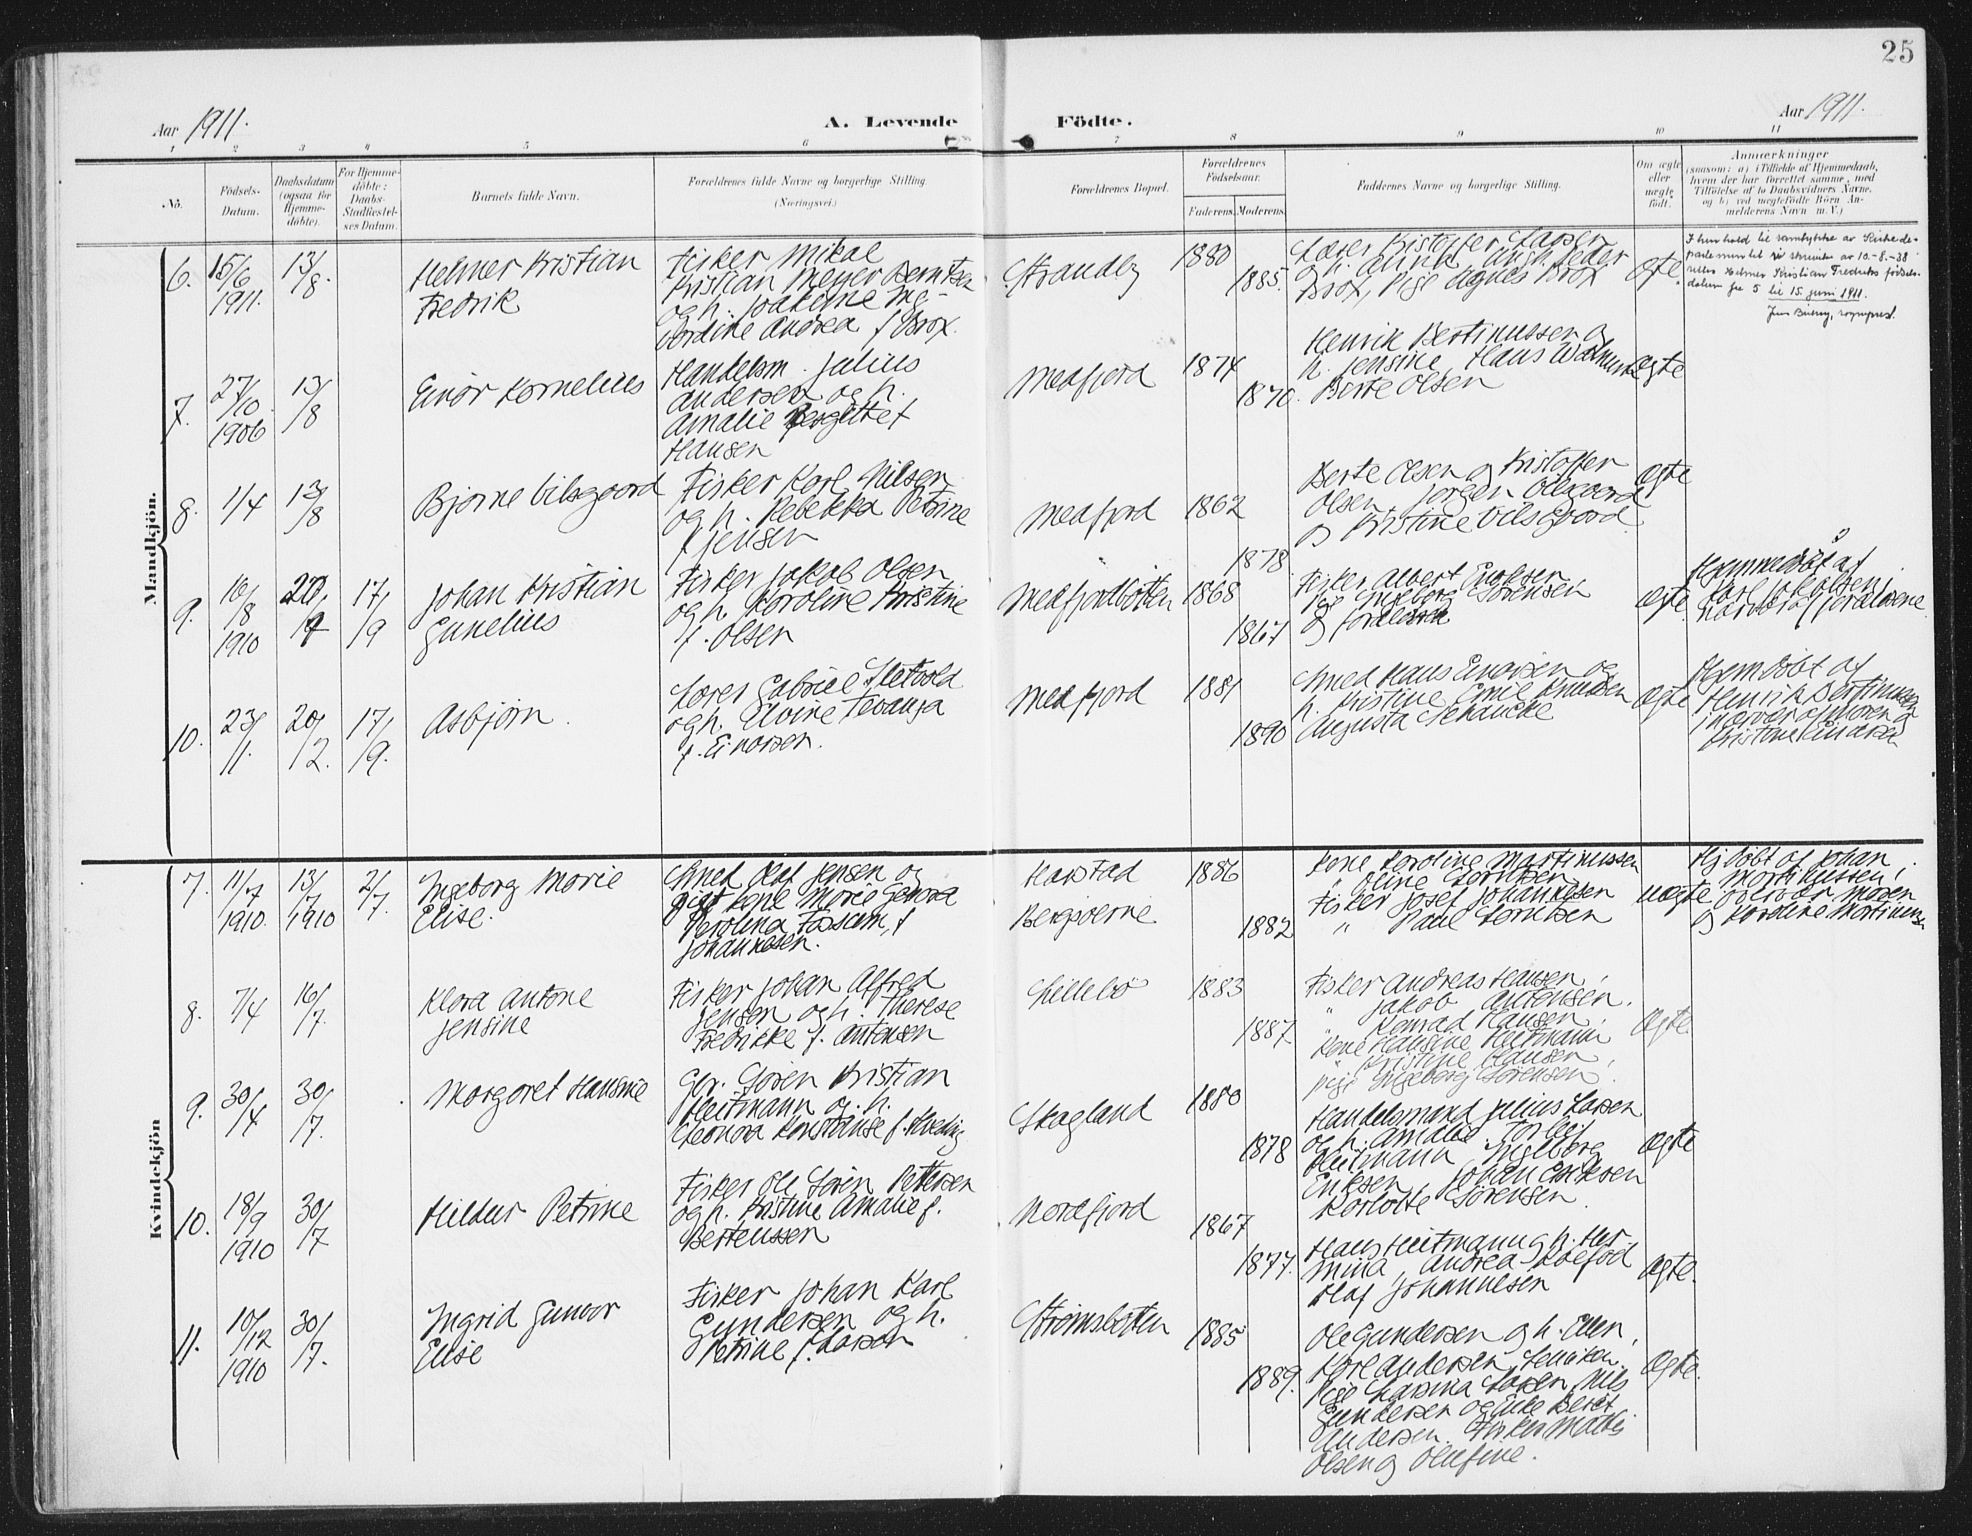 25
Aar 1911.
A. Levende Födte.
Aar 1911.
1 2 3 4 5 6 7 8 9 10 11
No.
Födsels-Datum.
Daabsdatum (ogsaa for Hjemme-döbte).
For Hjemme-döbte: Daabs-Stadfæstel-ses Datum.
Barnets fulde Navn.
Forældrenes fulde Navne og borgerlige Stilling.
(Næringsvei.)
Forældrenes Bopæl.
Forældrenes Födselsaar.
Faderens. Moderens.
Faddernes Navne og borgerlige Stilling.
Om ægte eller uægte födt.
Anmærkninger
(saasom: a) i Tilfælde af Hjemmedaab, hvem der har forrettet samme, med Tilföielse af to Daabsvidners Navne, og b) ved uægtefödte Börn An-melderens Navn m. V.)
Mandkjön.
6. 15/6 1911. 13/8.
Helmer Kristian
Fredrik
Fisker Mikal
Kristian Meyer Berntsen
og h. Joakime In-
f. Brox.
Strandby
1880
1885.
Lærer Kristoffer Larsen
Brox, Pige Agnes Brox
Ægte.
I henhold til samtykke av Kirkede-
partementet i skrivelse av 10.-8.-38
rettes Helmer Kristian Fredriks födsels-
datum fra 5 til 15. juni 1911.
sogneprest.
7. 27/10 1906 13/8
Einar Kornelius
Handelsm. Julius
Andersen og h.
Amalie Bergitte f
Hansen
Medfjord
1874
1870.
Henrik Bertinussen og
h. Jensine, Hans
Berte Olsen
Ægte
8. 1/4 13/8
Bjarne Vilsgaard
Fisker Karl Nilsen
og h. Rebekka Petrine
f Jensen
Medfjord
1862
1878
Berte Olsen og Kristoffer
Olsen, Jørgen
og Kristine Vilsgaard.
Ægte
9. 16/8 1910 17/9
Johan Kristian
Gunelius
Fisker Jakob Olsen
og h. Karoline Kristine
f. Olsen
Medfjordbotten
1868
1867
Fisker Albert Eriksen
Pige Ingeborg Sørensen
og forældrene
Ægte.
Hjemmedöbt af
Karl Jakobsen
forældrene
10. 23/11. 20/12. 17/9.
Asbjørn.
Lærer Gabriel Sletvold
og h. Elvine Tevanja
f. Einarsen.
Medfjord
1881
1890
Smed Hans Einarsen og
h. Kristine, Emil Knudsen
Augusta Schancke
Ægte
Hjemdöbt af
Henrik Bertinussen
i nærvær af moren og
Kristine Einarsen
Kvindekjön
7. 11/7 1910. 13/7 1910 2/7.
Ingeborg Marie
Elise.
Smed Olaf Jensen og
gift kone Marie Genora
Karolina Fossum, f
Johannesen.
Harstad
Bergsøerne
1886
1882
Kone Karoline Martinussen
" Oline Lorntsen
Fisker Josef Johannesen
" Paul Lorntsen
uægte
Hj. döbt af Johan
Martinussen i
overvær af moren
og Karoline Martinussen
8. 7/4 16/7.
Klara Antone
Jensine
Fisker Johan Alfred
Jensen og h. Therese
Fredrikke f. Antonsen
Lillebo
1883
1887
Fisker Andreas Hansen,
" Jakob Antonsen.
" Konrad Hansen,
Kone Hansine Heitmann
" Kristine Hansen,
Pige Ingeborg Sørensen.
Ægte
9. 30/4 30/7.
Margaret Hansine
Gbr. Søren Kristian
Heitmann og h.
Eleonora Konstanse f.
Skagland
1880
1878
Handelsmand Julius Larsen
og h. Amalie.
Heitmann Ingeborg
Eriksen, Johan Eriksen
Karlotte Sørensen.
Ægte
10. 18/9 1910 30/7
Hildur Petrine
Fisker Ole Søren Pettersen
og h. Kristine Amalie f.
Bertenssen
Nordfjord
1867
1877.
Hans Heitmann og h. Her-
mina, Andrea Koefod
Olaf Johannesen
Ægte.
11. 10/12 1910 30/7.
Ingrid Gunvor
Elise
Fisker Johan Karl
Gundersen og h.
Petrine f. Larsen
Strømsbotten
1885
1889.
Ole Gundersen og h. Ellen,
Karl Andersen
Pige Larsine Larsen, Nils
Gundersen og Enke Berit
Andersen. Fisker Mathis
Olsen og Olufine.
Ægte.